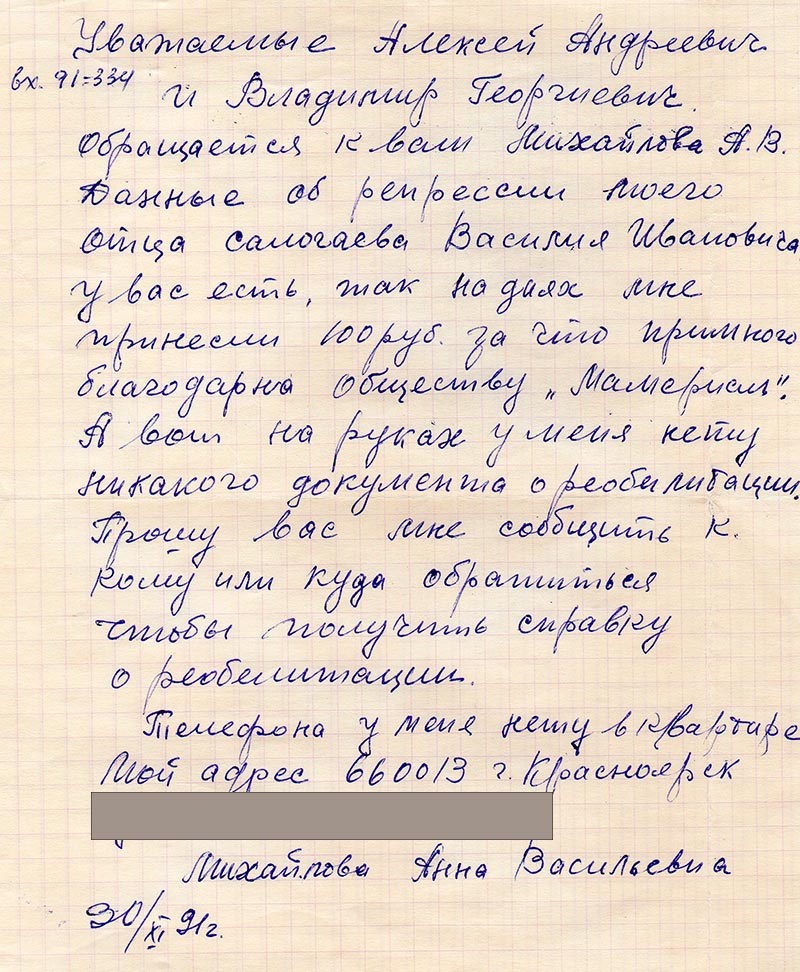 Уважаемые Алексей Андреевич
вх. 91=334
и Владимир Георгиевич.
Обращается к вам Михайлова А.В.
Данные об репрессии моего
отца Салогаева Василия Ивановича
у вас есть, так на днях мне
принесли 100 руб. за что примного
благодарна обществу „Мамериаль".
А вот на руках у меня нету
никакого документа о реобилитации.
Прошу вас мне сообщить к.
кому или куда обратиться
чтобы получить справку
о реобелитации.
Телефона у меня нету в квартире
Мой адрес 660013 г. Красноярск
Михайлова Анна Васильевна
30/XI 91г.